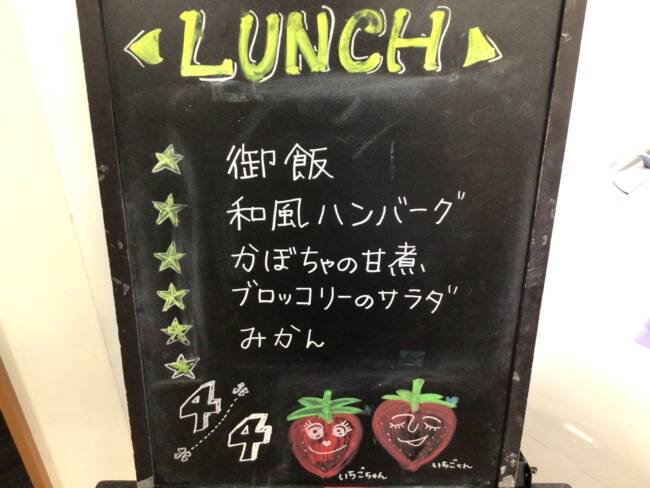 LUNCH
御飯
和風ハンバーグ
かぼちゃの甘煮
ブロッコリーのサラダ
みかん
4
4
いちごちゃん
いちごくん